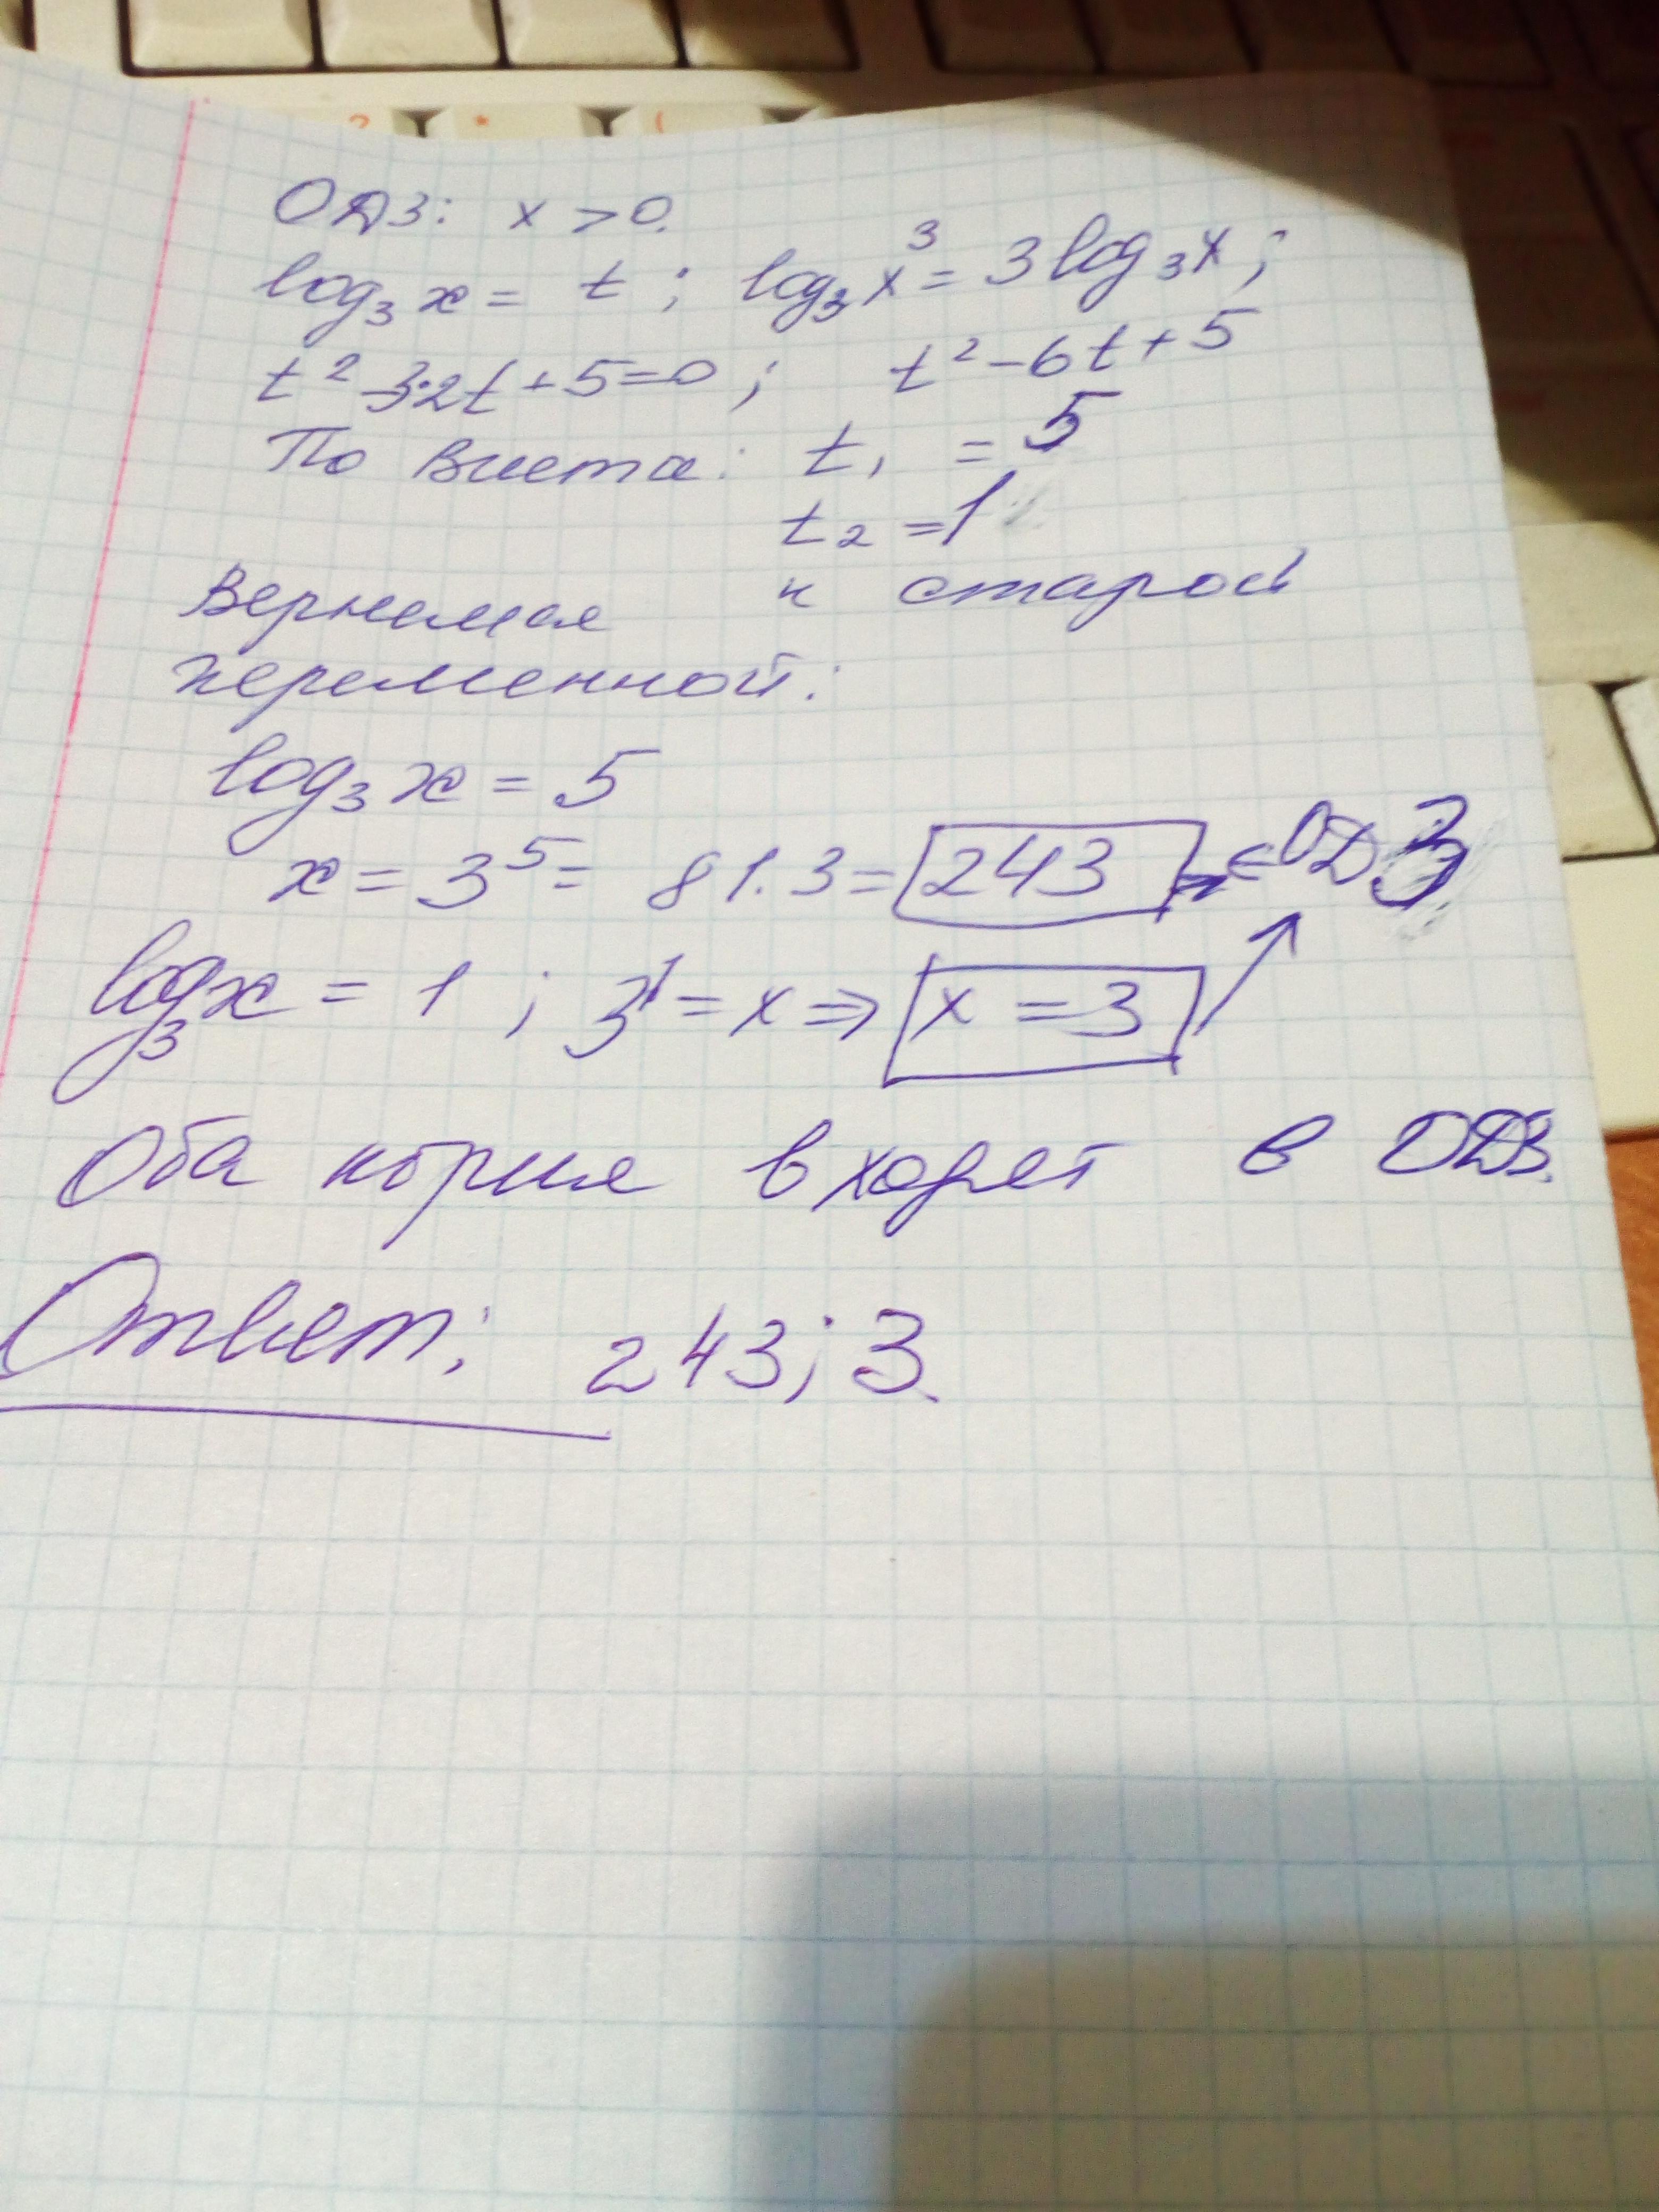 ОДЗ: x > 0.
log₃ x = t ; log₃ x³ = 3 log₃ x ;
t² - 3·2t + 5 = 0 ; t² - 6t + 5
По Виета: t₁ = 5
t₂ = 1
Вернемся к старой
переменной:
log₃ x = 5
x = 3⁵ = 81·3 = 243 ∈ ОДЗ
log₃ x = 1 ; 3¹ = x ⇒ x = 3
Оба корня входят в ОДЗ.
Ответ: 243; 3.